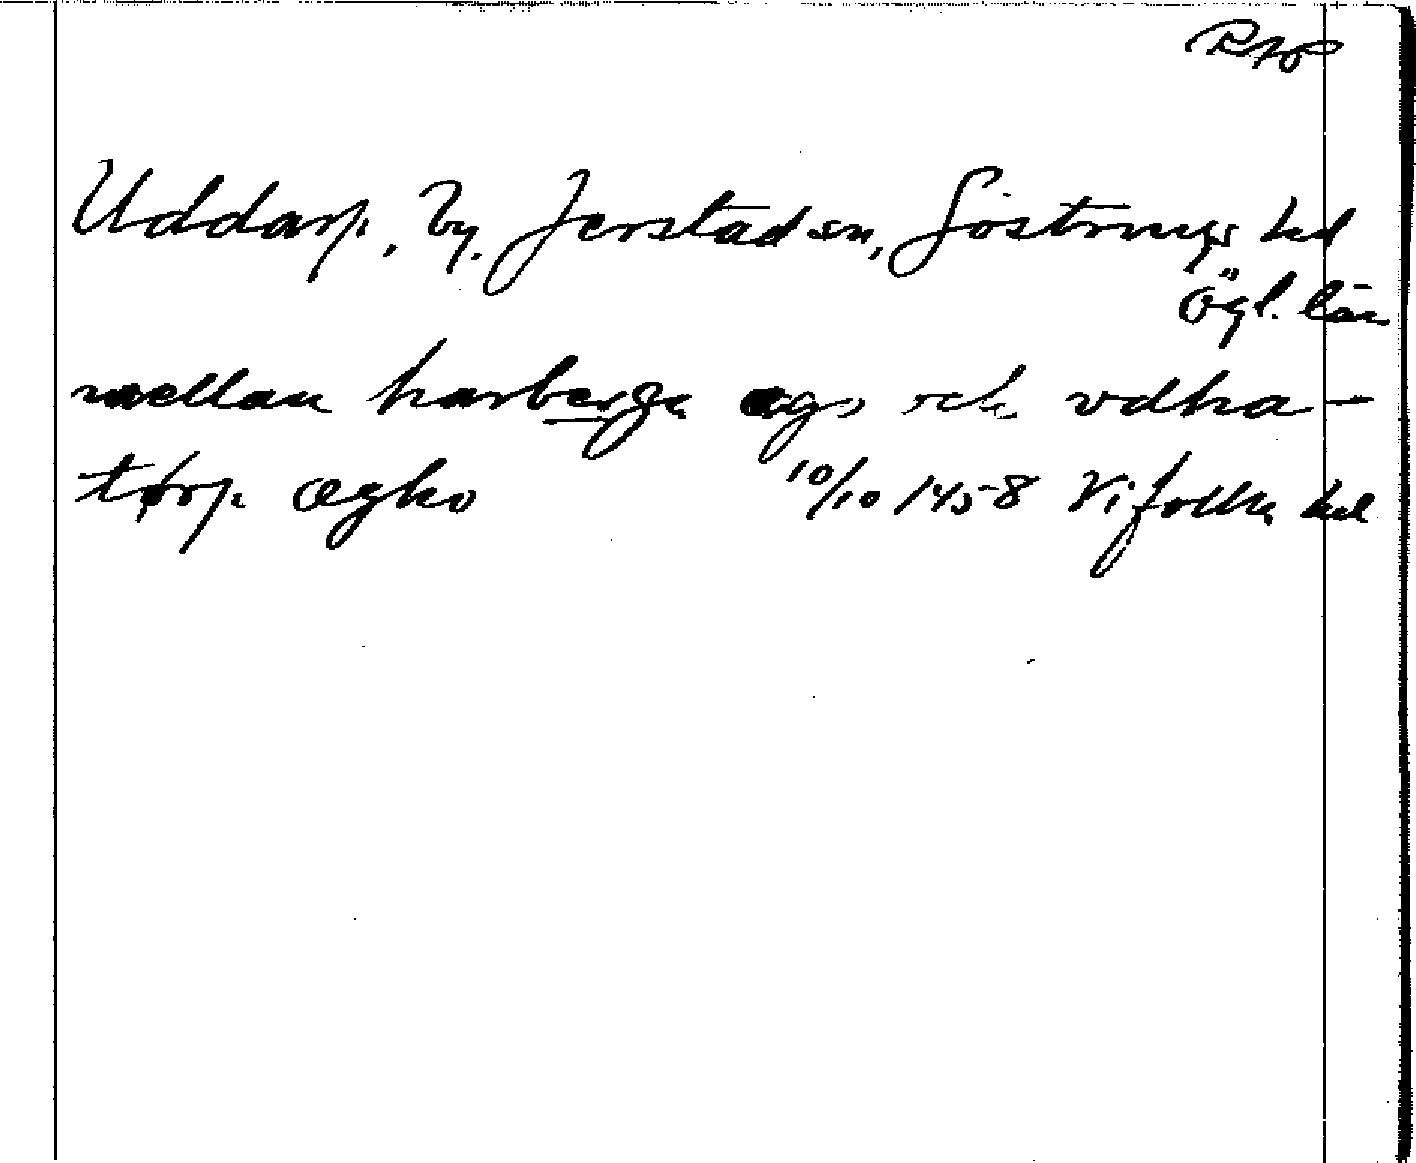 RAP
Uddarp, by, Jerstad sn, Göstrings hd
Ögl. län
mellan harberga ægo och vdha-
torp ægho 10/10 1458 Vifolka hd